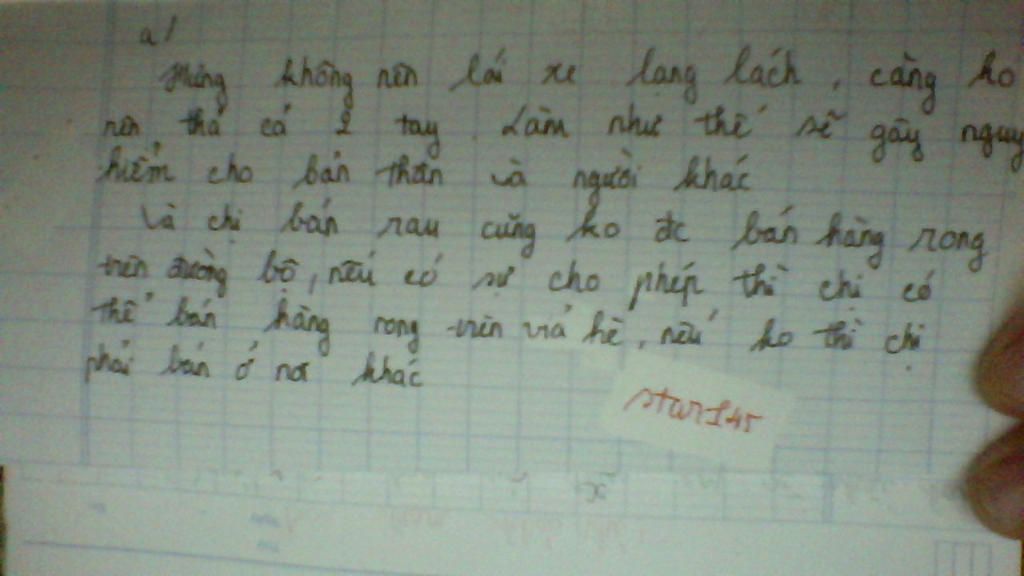 a/
Hùng không nên lái xe lạng lách, càng ko
nên thả cả 2 tay. Làm như thế sẽ gây nguy
hiểm cho bản thân và người khác
Và chị bán rau cũng ko đc bán hàng rong
trên đường bộ, nếu có sự cho phép thì chị có
thể bán hàng rong trên vỉa hè, nếu ko thì chị
phải bán ở nơi khác
star145